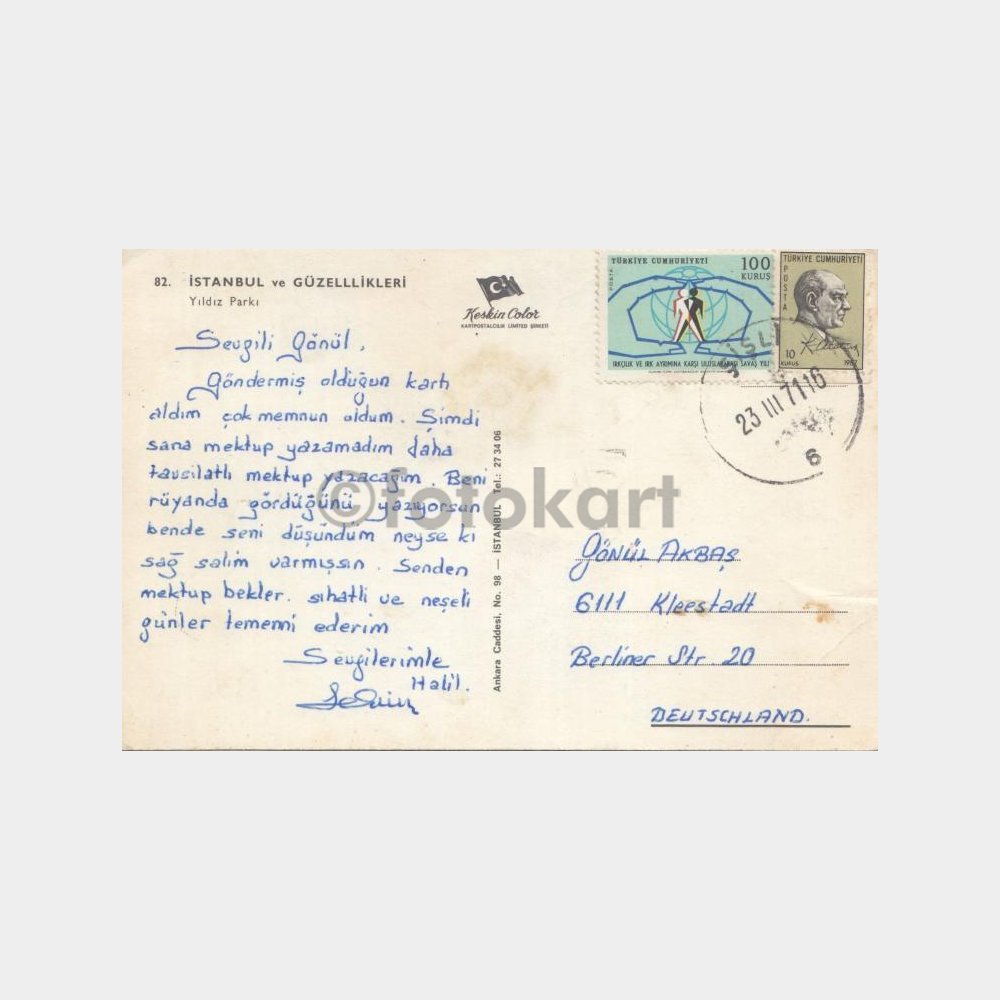 82. İSTANBUL ve GÜZELLLİKLERİ
Yıldız Parkı
Keskin Color
KARTPOSTALCILIK LİMİTED ŞİRKETİ
Sevgili Gönül,
Göndermiş olduğun kartı
aldım çok memnun oldum. Şimdi
sana mektup yazamadım daha
tavsilatlı mektup yazacağım. Beni
rüyanda gördüğünü yazıyorsun
bende seni düşündüm neyse ki
sağ salim varmışsın. Senden
mektup bekler. sıhatli ve neşeli
günler temenni ederim
Sevgilerimle
Halil.
Ankara Caddesi, No. 98 — İSTANBUL Tel.: 27 34 06
TÜRKİYE CUMHURİYETİ
POSTA
100
KURUŞ
IRKÇILIK VE IRK AYRIMINA KARŞI ULUSLARARASI SAVAŞ YILI
TÜRKİYE CUMHURİYETİ
POSTA
10
KURUŞ
ŞİŞLİ
23 III 71 16
6
GÖNÜL AKBAŞ
6111 Kleestadt
Berliner Str. 20
DEUTSCHLAND.
©fotokart